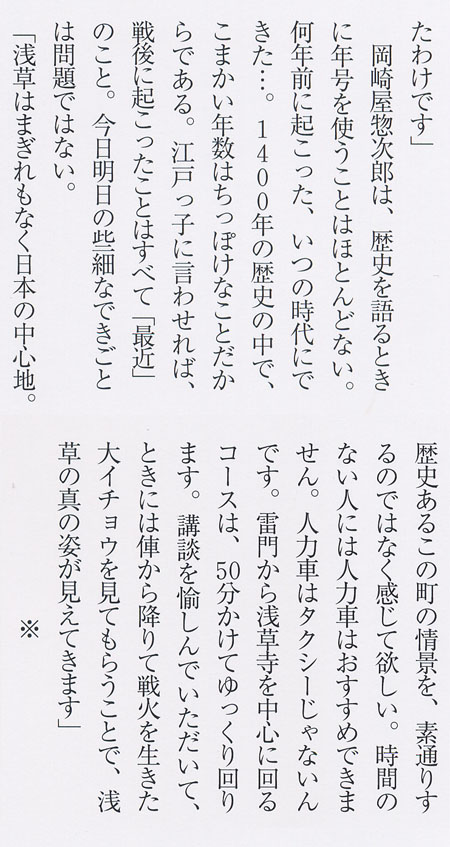 たわけです」
　岡崎屋惣次郎は、歴史を語るとき
に年号を使うことはほとんどない。
何年前に起こった、いつの時代にで
きた…。1400年の歴史の中で、
こまかい年数はちっぽけなことだか
らである。江戸っ子に言わせれば、
戦後に起こったことはすべて「最近」
のこと。今日明日の些細なできごと
は問題ではない。
「浅草はまぎれもなく日本の中心地。
歴史あるこの町の情景を、素通りす
るのではなく感じて欲しい。時間の
ない人には人力車はおすすめできま
せん。人力車はタクシーじゃないん
です。雷門から浅草寺を中心に回る
コースは、50分かけてゆっくり回り
ます。講談を愉しんでいただいて、
ときには俥から降りて戦火を生きた
大イチョウを見てもらうことで、浅
草の真の姿が見えてきます」
※